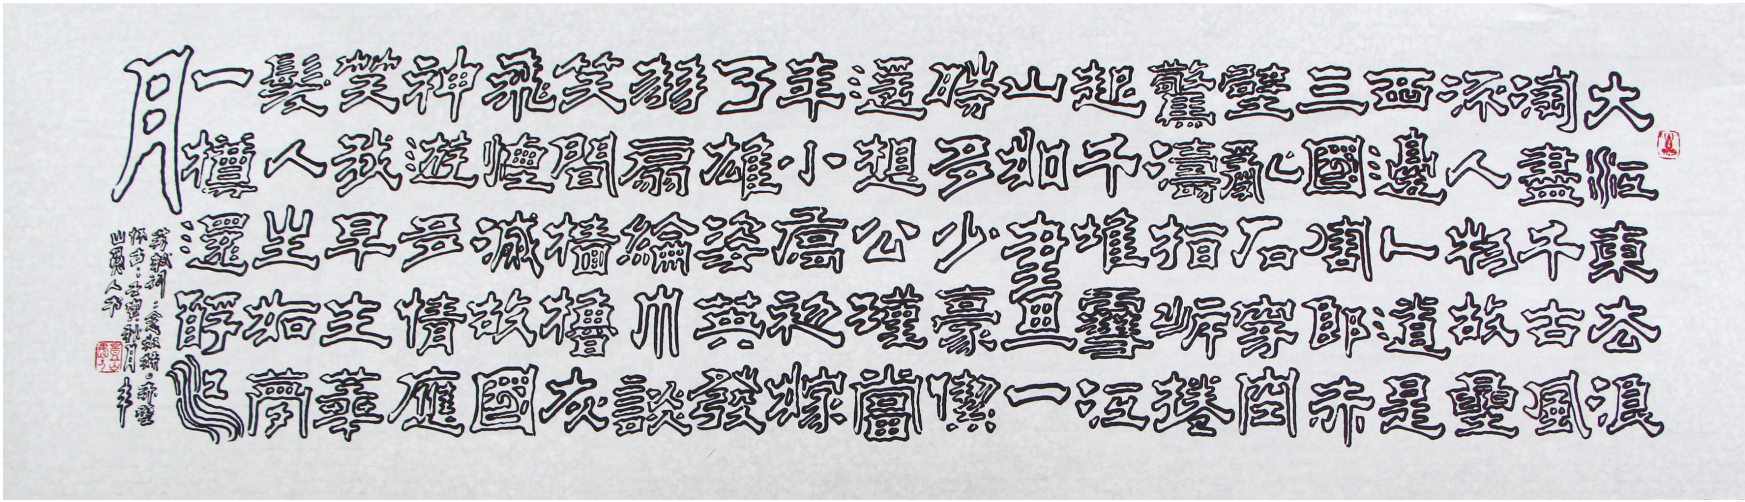 大江東去浪
淘盡千古風
流人物故壘
西邊人道是
三國周郎赤
壁亂石穿空
驚濤拍岸捲
起千堆雪江
山如畫一
時多少豪傑
遙想公瑾當
年小喬初嫁
了雄姿英發
羽扇綸巾談
笑間檣櫓灰
飛煙滅故國
神遊多情應
笑我早生華
髮人生如夢
一樽還酹江
月
蘇軾詞念奴嬌赤壁
懷古